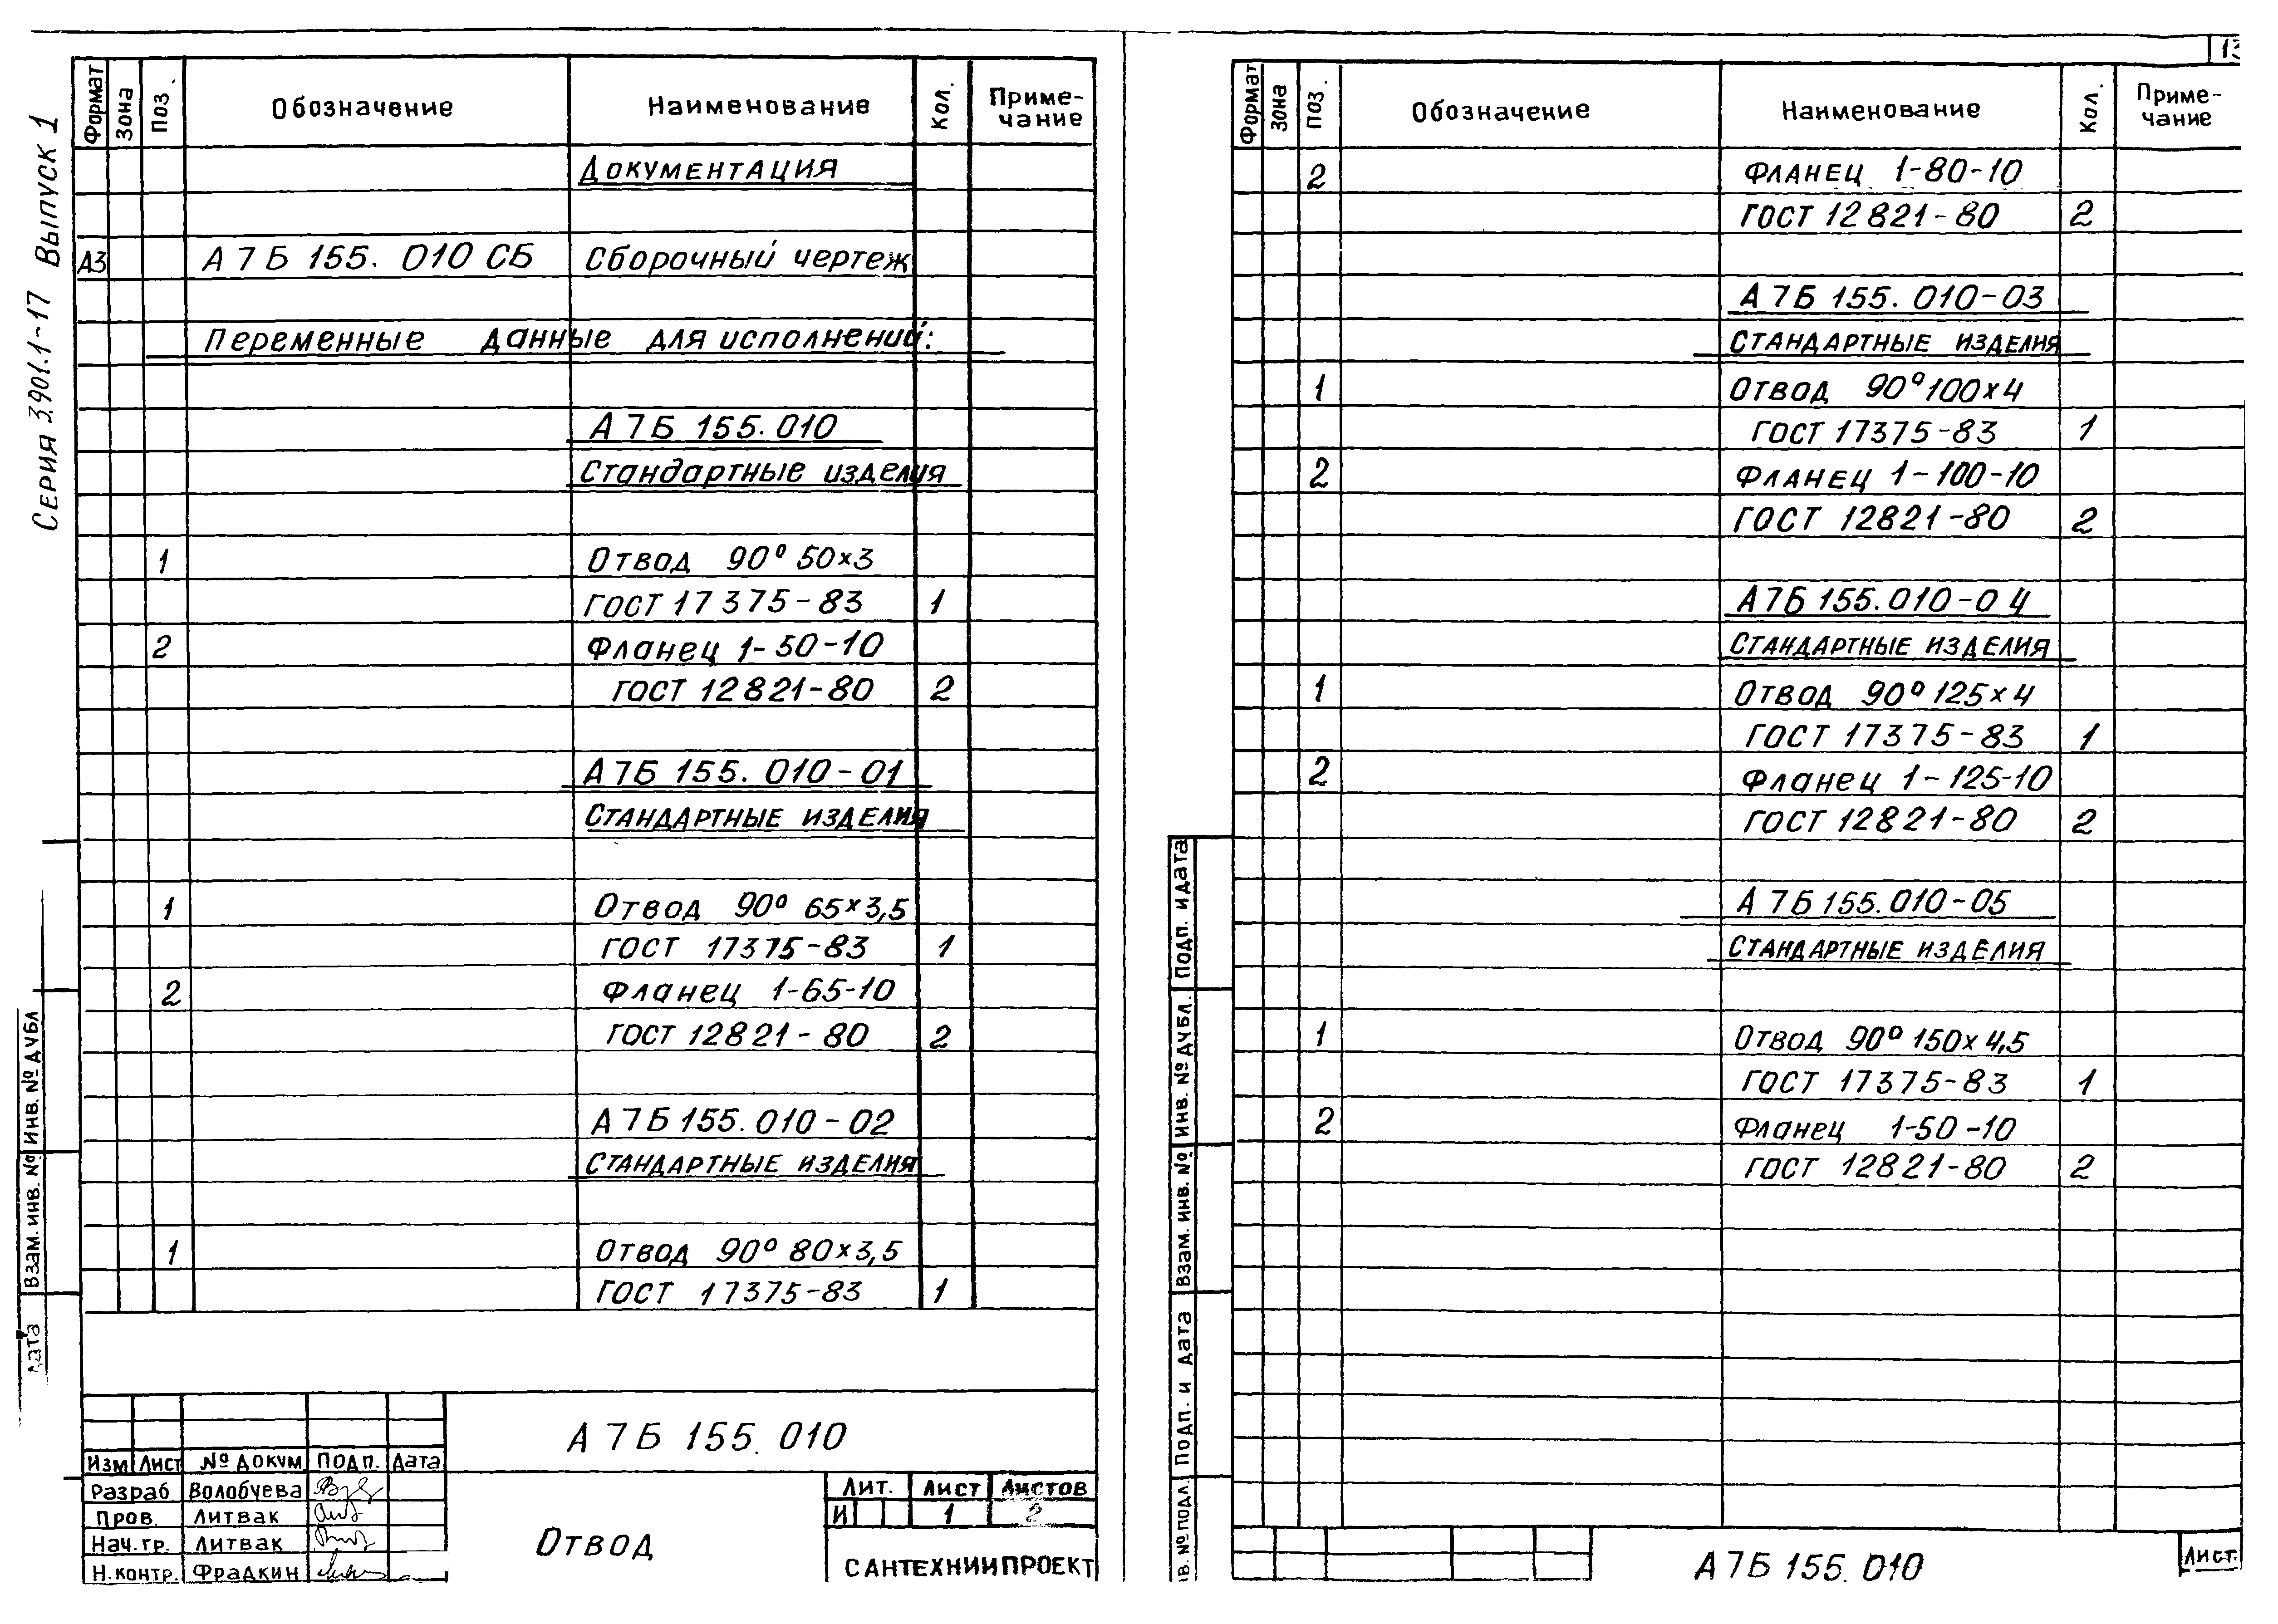 Серия 3.901.1-17 Выпуск 1
Формат Зона Поз. Обозначение Наименование Кол. Приме-
чание
Документация
А3 А7Б 155.010 СБ Сборочный чертеж
Переменные данные для исполнений:
А7Б 155.010
Стандартные изделия
1 Отвод 90° 50×3
ГОСТ 17375-83 1
2 Фланец 1-50-10
ГОСТ 12821-80 2
А7Б 155.010-01
Стандартные изделия
1 Отвод 90° 65×3,5
ГОСТ 17375-83 1
2 Фланец 1-65-10
ГОСТ 12821-80 2
А7Б 155.010-02
Стандартные изделия
1 Отвод 90° 80×3,5
ГОСТ 17375-83 1
Инв. № дубл
Взам. инв. №
дата
А7Б 155.010
Изм Лист № докум Подп. Дата
Разраб Волобуева
Пров. Литвак
Нач.гр. Литвак
Н.контр. Фрадкин
Отвод
Лит. Лист Листов
И 1 2
САНТЕХНИИПРОЕКТ
Формат Зона Поз. Обозначение Наименование Кол. Приме-
чание
2 Фланец 1-80-10
ГОСТ 12821-80 2
А7Б 155.010-03
Стандартные изделия
1 Отвод 90° 100×4
ГОСТ 17375-83 1
2 Фланец 1-100-10
ГОСТ 12821-80 2
А7Б 155.010-04
Стандартные изделия
1 Отвод 90° 125×4
ГОСТ 17375-83 1
2 Фланец 1-125-10
ГОСТ 12821-80 2
А7Б 155.010-05
Стандартные изделия
1 Отвод 90° 150×4,5
ГОСТ 17375-83 1
2 Фланец 1-50-10
ГОСТ 12821-80 2
Подп. и дата
Инв. № дубл.
Взам. инв. №
Подп. и дата
в. № подл.
А7Б 155.010
Лист